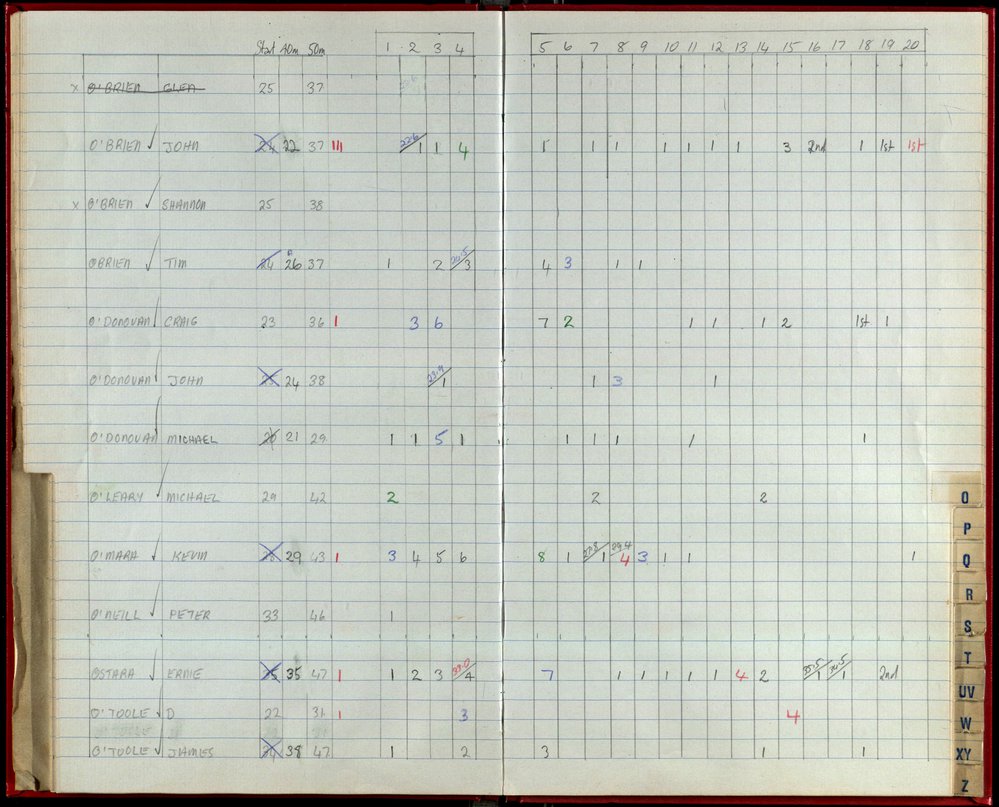 Start 40m 50m 1 2 3 4 5 6 7 8 9 10 11 12 13 14 15 16 17 18 19 20
x O'BRIEN GLEN 25 37
O'BRIEN ✓ JOHN 24 22 37 III 22.6/1 1 4 1 1 1 1 1 1 1 3 2nd 1 1st 1st
x O'BRIEN ✓ SHANNON 25 38
OBRIEN ✓ TIM 24 26 37 1 2 /3 4 3 1 1
O'DONOVAN ✓ CRAIG 23 36 1 3 6 7 2 1 1 1 2 1st 1
O'DONOVAN ✓ JOHN 24 38 23.9/1 1 3 1
O'DONOVAN ✓ MICHAEL 20 21 29 1 1 5 1 1 1 1 1 1
O'LEARY ✓ MICHAEL 29 42 2 2 2
O'MARA ✓ KEVIN 29 43 1 3 4 5 6 8 1 27.8/1 29.4/4 3 1 1 1
O'NEILL ✓ PETER 33 46 1
OSTARA ✓ ERNIE 35 35 47 1 1 2 3 /4 7 1 1 1 1 1 4 2 /1 /1 2nd
O'TOOLE ✓ D 22 31 1 3 4
O'TOOLE ✓ JAMES 38 47 1 2 3 1 1
O
P
Q
R
S
T
UV
W
XY
Z